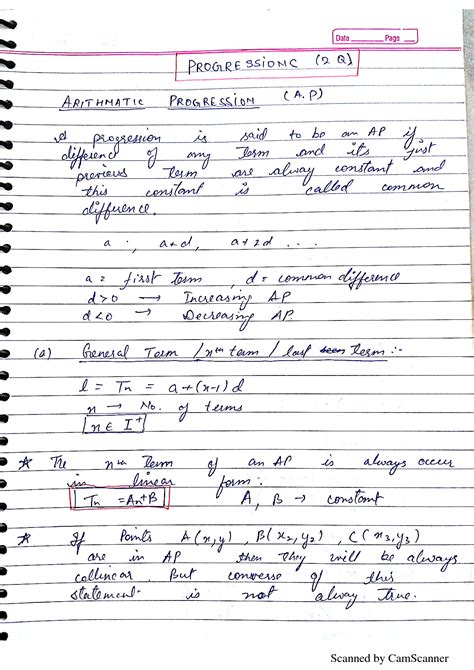 Date Page
PROGRESSIONC (2 Q)
ARITHMATIC PROGRESSION (A.P)
A progression is said to be an AP if
difference of any term and its just
previous term are alway constant and
this constant is called common
difference.
a, a+d, a+2d ...
a = first term, d = common difference
d>0 → Increasing AP
d<0 → Decreasing AP.
(a) General Term / nth term / last term :-
l = Tn = a+(n-1) d
n → No. of terms
[n ∈ I+]
* The nth Term of an AP is always occur
in linear form:
Tn = An+B A, B → constant
* If Points A(x,y), B(x2,y2), C(x3,y3)
are in AP then They will be always
collinear. But converse of this
statement is not alway true.
Scanned by CamScanner